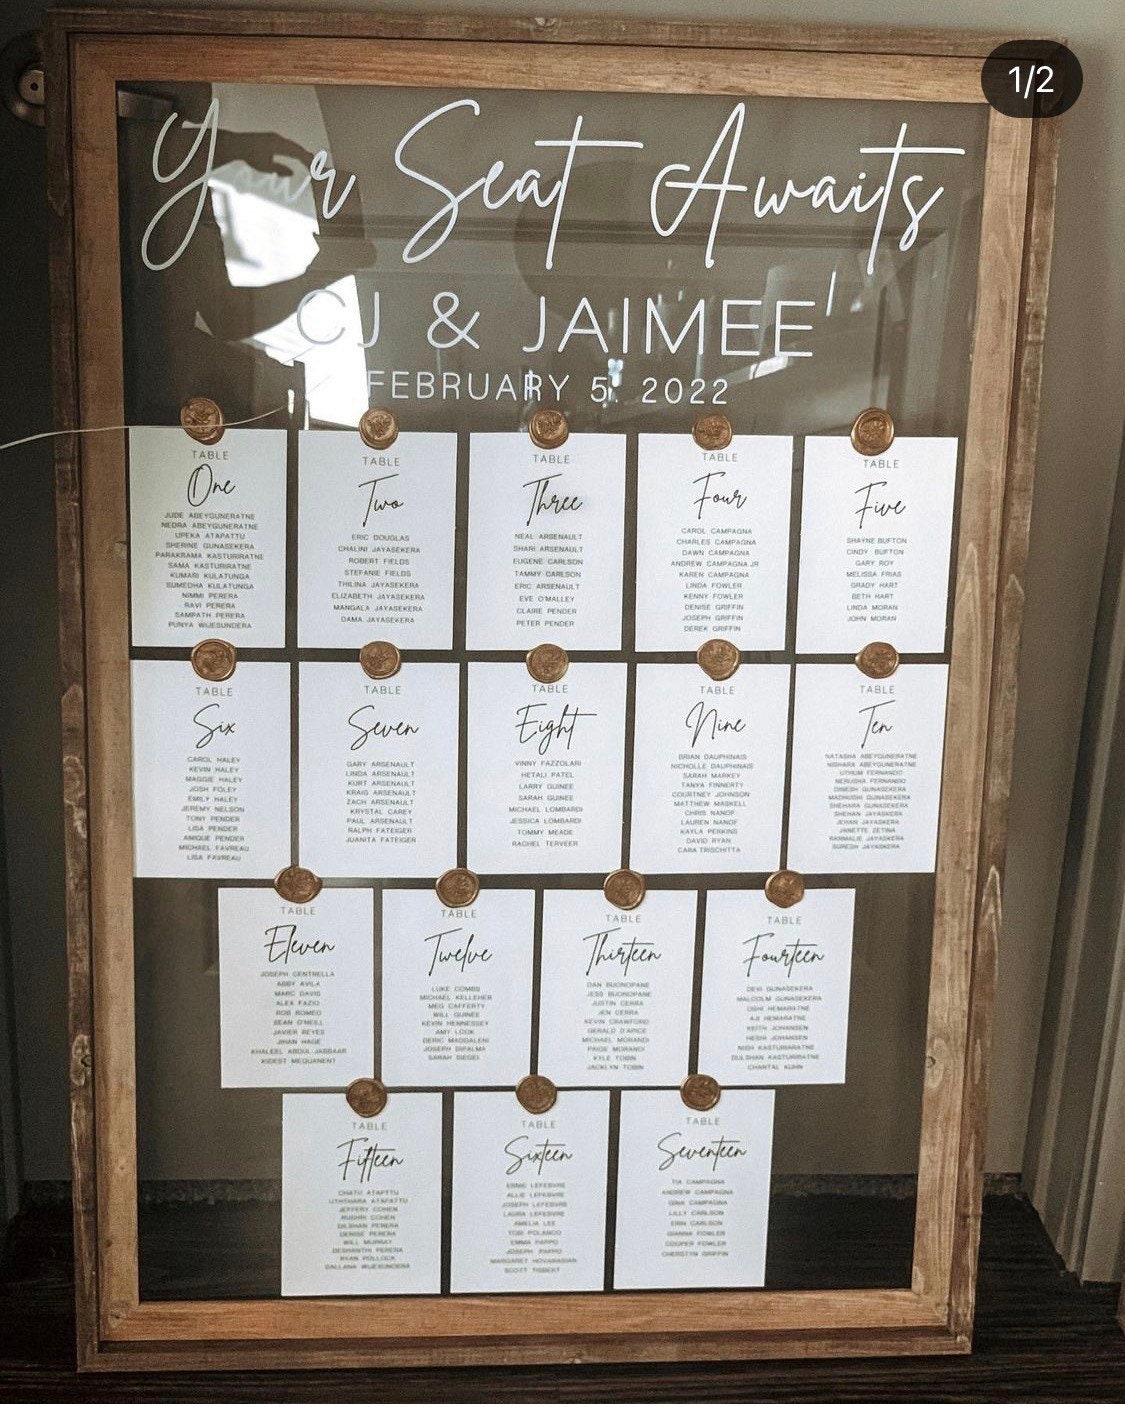 1/2
Your Seat Awaits
CJ & JAIMEE
FEBRUARY 5, 2022
TABLE
One
JUDE ABEYGUNERATNE
NEDRA ABEYGUNERATNE
UPEKA ATAPATTU
SHERINE GUNASEKERA
PARAKRAMA KASTURIRATNE
SAMA KASTURIRATNE
KUMARI KULATUNGA
SUMEDHA KULATUNGA
NIMMI PERERA
RAVI PERERA
SAMPATH PERERA
PUNYA WIJESUNDERA
TABLE
Two
ERIC DOUGLAS
CHALINI JAYASEKERA
ROBERT FIELDS
STEFANIE FIELDS
THILINA JAYASEKERA
ELIZABETH JAYASEKERA
MANGALA JAYASEKERA
DAMA JAYASEKERA
TABLE
Three
NEAL ARSENAULT
SHARI ARSENAULT
EUGENE CARLSON
TAMMY CARLSON
ERIC ARSENAULT
EVE O'MALLEY
CLAIRE PENDER
PETER PENDER
TABLE
Four
CAROL CAMPAGNA
CHARLES CAMPAGNA
DAWN CAMPAGNA
ANDREW CAMPAGNA JR
KAREN CAMPAGNA
LINDA FOWLER
KENNY FOWLER
DENISE GRIFFIN
JOSEPH GRIFFIN
DEREK GRIFFIN
TABLE
Five
SHAYNE BUFTON
CINDY BUFTON
GARY ROY
MELISSA FRIAS
GRADY HART
BETH HART
LINDA MORAN
JOHN MORAN
TABLE
Six
CAROL HALEY
KEVIN HALEY
MAGGIE HALEY
JOSH FOLEY
EMILY HALEY
JEREMY NELSON
TONY PENDER
LISA PENDER
AMIQUE PENDER
MICHAEL FAVREAU
LISA FAVREAU
TABLE
Seven
GARY ARSENAULT
LINDA ARSENAULT
KURT ARSENAULT
KRAIG ARSENAULT
ZACH ARSENAULT
KRYSTAL CAREY
PAUL ARSENAULT
RALPH FATEIGER
JUANITA FATEIGER
TABLE
Eight
VINNY FAZZOLARI
HETALI PATEL
LARRY GUINEE
SARAH GUINEE
MICHAEL LOMBARDI
JESSICA LOMBARDI
TOMMY MEADE
RACHEL TERVEER
TABLE
Nine
BRIAN DAUPHINAIS
NICHOLLE DAUPHINAIS
SARAH MARKEY
TANYA FINNERTY
COURTNEY JOHNSON
MATTHEW MASKELL
CHRIS NANOF
LAUREN NANOF
KAYLA PERKINS
DAVID RYAN
CARA TRISCHITTA
TABLE
Ten
NATASHA ABEYGUNERATNE
NISHARA ABEYGUNERATNE
UTHUM FERNANDO
NERUSHA FERNANDO
DINESH GUNASEKERA
MADHUSHI GUNASEKERA
SHEHARA GUNASEKERA
SHEHAN JAYASKERA
JEHAN JAYASKERA
JANETTE ZETINA
RANMALIE JAYASKERA
SURESH JAYASKERA
TABLE
Eleven
JOSEPH CENTRELLA
ABBY AVILA
MARC DAVIS
ALEX FAZIO
ROB ROMEO
SEAN O'NEILL
JAVIER REYES
JIHAN HAGE
KHALEEL ABDUL-JABBAAR
KIDEST MEQUANENT
TABLE
Twelve
LUKE COMBS
MICHAEL KELLEHER
MEG CAFFERTY
WILL GUINEE
KEVIN HENNESSEY
AMY LOOK
DERIC MAGDALENI
JOSEPH DIPALMA
SARAH SIEGEL
TABLE
Thirteen
DAN BUONOPANE
JESS BUONOPANE
JUSTIN CERRA
JEN CERRA
KEVIN CRAWFORD
GERALD D'ARCE
MICHAEL MORANDI
PAIGE MORANDI
KYLE TOBIN
JACKLYN TOBIN
TABLE
Fourteen
DEVI GUNASEKERA
MALCOLM GUNASEKERA
OSHI HEMARATNE
AJI HEMARATNE
KEITH JOHANSEN
HESHI JOHANSEN
NISH KASTURIARATNE
DULSHAN KASTURIRATNE
CHANTAL KUHN
TABLE
Fifteen
CHATU ATAPTTU
UTHTHARA ATAPATTU
JEFFERY COHEN
RUSHRI COHEN
DILSHAN PERERA
DENISE PERERA
WILL MURRAY
DESHANTHI PERERA
RYAN POLLOCK
DALLANA WIJESUNDERA
TABLE
Sixteen
ERNIE LEFEBVRE
ALLIE LEFEBVRE
JOSEPH LEFEBVRE
LAURA LEFEBVRE
AMELIA LEE
TOBI POLANCO
EMMA PAPPO
JOSEPH PAPPO
MARGARET HOVANASIAN
SCOTT TISBERT
TABLE
Seventeen
TIA CAMPAGNA
ANDREW CAMPAGNA
GINA CAMPAGNA
LILLY CARLSON
ERIN CARLSON
GIANNA FOWLER
COOPER FOWLER
CHERSTYN GRIFFIN